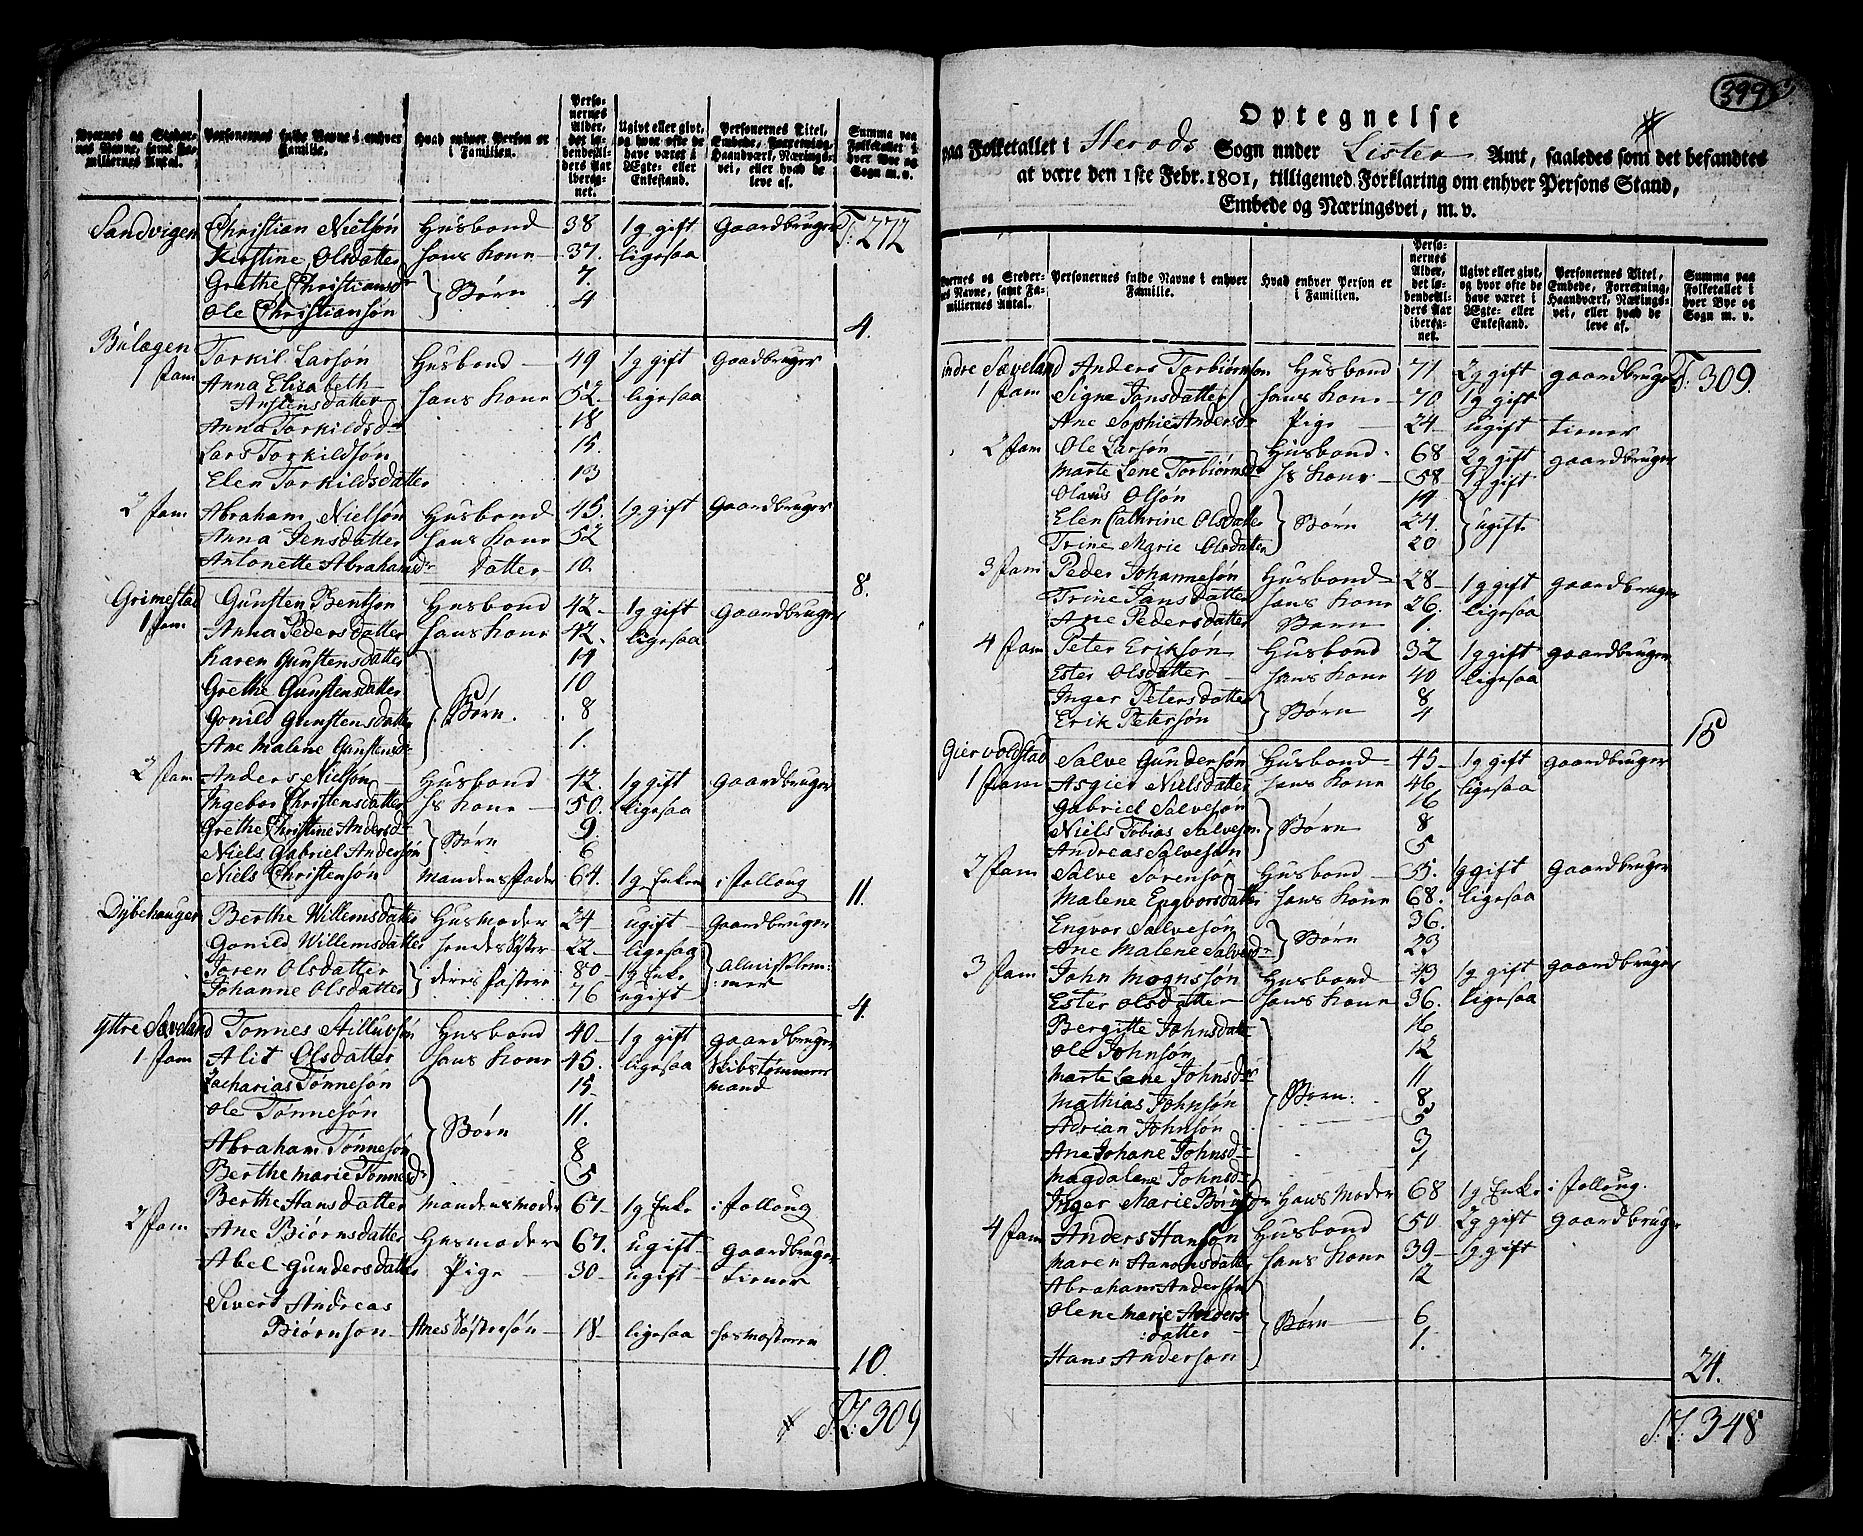 Byernes og Steder- nes Navne, samt Fa- miliernes Antal. | Personernes fulde Navne i enhver Familie. | Hvad enhver Person er i Familien. | Perso- nernes Alder, det lø- bendeAl- ders Aar iberég- net. | Ugivt eller givt, og hvor ofte de have været i Ægte- eller Enkestand. | Personernes Titel, Embede, Forretning, Haandværk, Nærings- vei, eller hvad de leve af. | Summa paa Folketallet i hver Bye og Sogn m. v.
Sandvigen Christian Nielsøn Husbond 38 1g gift Gaardbruger T: 272
Kirstine Olsdatter hans Kone 37. ligesaa
Grethe Christiansdr } Børn 7.
Ole Christiansøn 4
4.
Bulægen Torkil Larsøn Husbond 49 1g gift Gaadbruger
1 fam Anna Elisabeth
Anstensdatter hans Kone 52 ligesaa
Anna Torkildsdr 18
Lars Torkildsøn 15.
Elen Torkildsdatter 13
2 fam Abraham Nielsøn Husbond 45. 1g gift Gaardbruger
Anna Jensdatter hans Kone 52
Antonette Abrahamsdr datter 10.
8.
Grimestad Gunsten Bentsøn Husbond 42 1g gift Gaardbruger
1 fam Anna Pedersdatter hans Kone 42. ligesaa
Karen Gunstensdatter 14
Grethe Gunstensdatter 10
Gonild Gunstensdatter } Børn. 8
Ane Malene Gunstensdr 1.
2 fam Anders Nielsøn Husbond 42. 1g gift Gaardbruger
Ingebor Christensdatter hs Kone 50. ligesaa
Grethe Christine Andersdr } Børn 9.
Niels Gabriel Andersøn 6
Niels Christensøn Mandens Fader 64. 1g Enke i Folloug
11.
Dybehauger Berthe Willemsdatter Husmoder 24 ugift Gaardbruger
Gonild Willemsdatter hendes Søster 22 ligesaa
Joren Olsdatter } deres Fastere 80 1g Enke } Almisselem:
Johanne Olsdatter 76 ugift :mer
4.
Yttre Sæveland Tønnes Stilluvsøn Husbond 40 1g gift Gaardbruger
1 fam Alit Olsdatter hans Kone 45. ligesaa Skibstømmer
Zacharias Tønnesøn 15 mand
Ole Tønnesøn 11.
Abraham Tønnesøn } Børn 8
Berthe Marie Tønnesdr 5
Berthe Hansdatter Mandens Moder 67 1g Enke i Folloug
2 fam Ane Biørnsdatter Husmoder 67. ugift Gaardbruger
Abel Gundersdatter Pige 30 ugift tiener
Sivert Andreas
Biørnsøn Anes Søstersøn 18 ligesaa hos Mosteren
10.
S. T: 309
399
Optegnelse
paa Folketallet i Herods Sogn under Lister Amt, saaledes som det befandtes
at være den 1ste Febr. 1801, tilligemed Forklaring om enhver Persons Stand,
Embede og Næringsvei, m. v.
Byernes og Steder- nes Navne, samt Fa- miliernes Antal. | Personernes fulde Navne i enhver Familie. | Hvad enhver Person er i Familien. | Perso- nernes Alder, det lø- bendeAl- ders Aar iberég- net. | Ugivt eller givt, og hvor ofte de have været i Ægte- eller Enkestand. | Personernes Titel, Embede, Forretning, Haandværk, Nærings- vei, eller hvad de leve af. | Summa paa Folketallet i hver Bye og Sogn m. v.
indre Sæveland Anders Torbiørnsøn Husbond 71 2g gift gaardbruger T: 309.
1 fam Signe Jonsdatter hans Kone 70 1g gift
Ane Sophie Andersdr Pige 24 ugift tiener
2 fam Ole Larsøn Husbond 68 2g gift gaardbruger
Marte Lene Torbiørnsdr hs Kone 58 1g gift
Olaus Olsøn 19
Elen Cathrine Olsdatter } Børn 24. } ugift
Trine Marie Olsdatter 20
3 fam Peder Johannesøn Husbond 28 1g gift gaardbruger
Trine Jansdatter hans Kone 26. ligesaa
Ane Pedersdatter Barn 1.
4 fam Peter Eriksøn Husbond 32 1g gift gaardbruger
Ester Olsdatter hans Kone 40 ligesaa
Inger Petersdatter } Børn 8
Erik Petersøn 4
15
Giervoldstad Salve Gundersøn Husbond 45 1g gift gaardbruger
1 fam Asgier Nielsdatter hans Kone 46 ligesaa
Gabriel Salvesøn 16
Niels Tobias Salvesøn } Børn 8
Andreas Salvesøn 5
2 fam Salve Sørensøn Husbond 55. 1g gift Gaardbruger
Malene Engvorsdatter hans Kone 68. ligesaa
Engvor Salvesøn } Børn 36.
Ane Malene Salvesdr 23
3 fam John Mognsøn Husbond 49 1g gift gaardbruger
Ester Olsdatter hans Kone 36. ligesaa
Bergitte Johnsdatter 16
Ole Johnsøn 12
Marte Lene Johnsdr 11
Mathias Johnsøn } Børn: 8
Adrian Johnsøn 5
Ane Johane Johnsdr 3
Magdalene Johnsdr 1
Inger Marie Børisdr Hans Moder 68 1g Enke i Folloug.
4 fam Anders Hansøn Husbond 50 2g gift Gaardbruger
Maren Aanonsdatter hans Kone 39 1g gift
Abraham Andersøn 12
Olene Marie Anders-
:datter } Børn 6
Hans Andersøn 1.
24.
S. T. 348